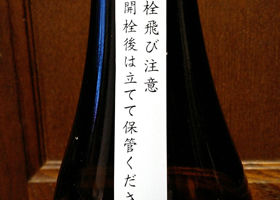 栓飛び注意
開栓後は立てて保管くださ